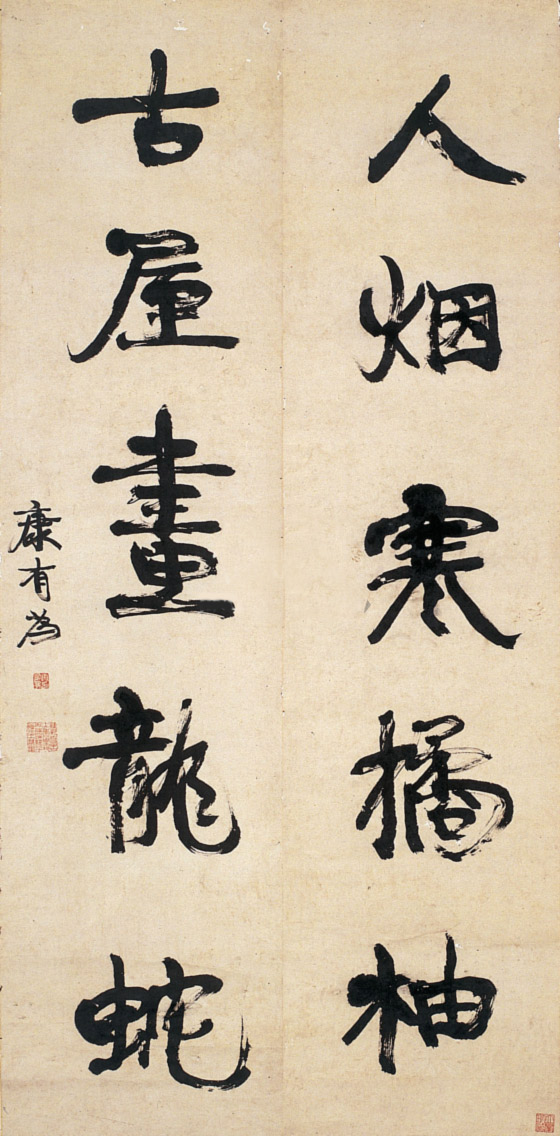 人烟寒橘柚
古屋畫龍蛇
康有為